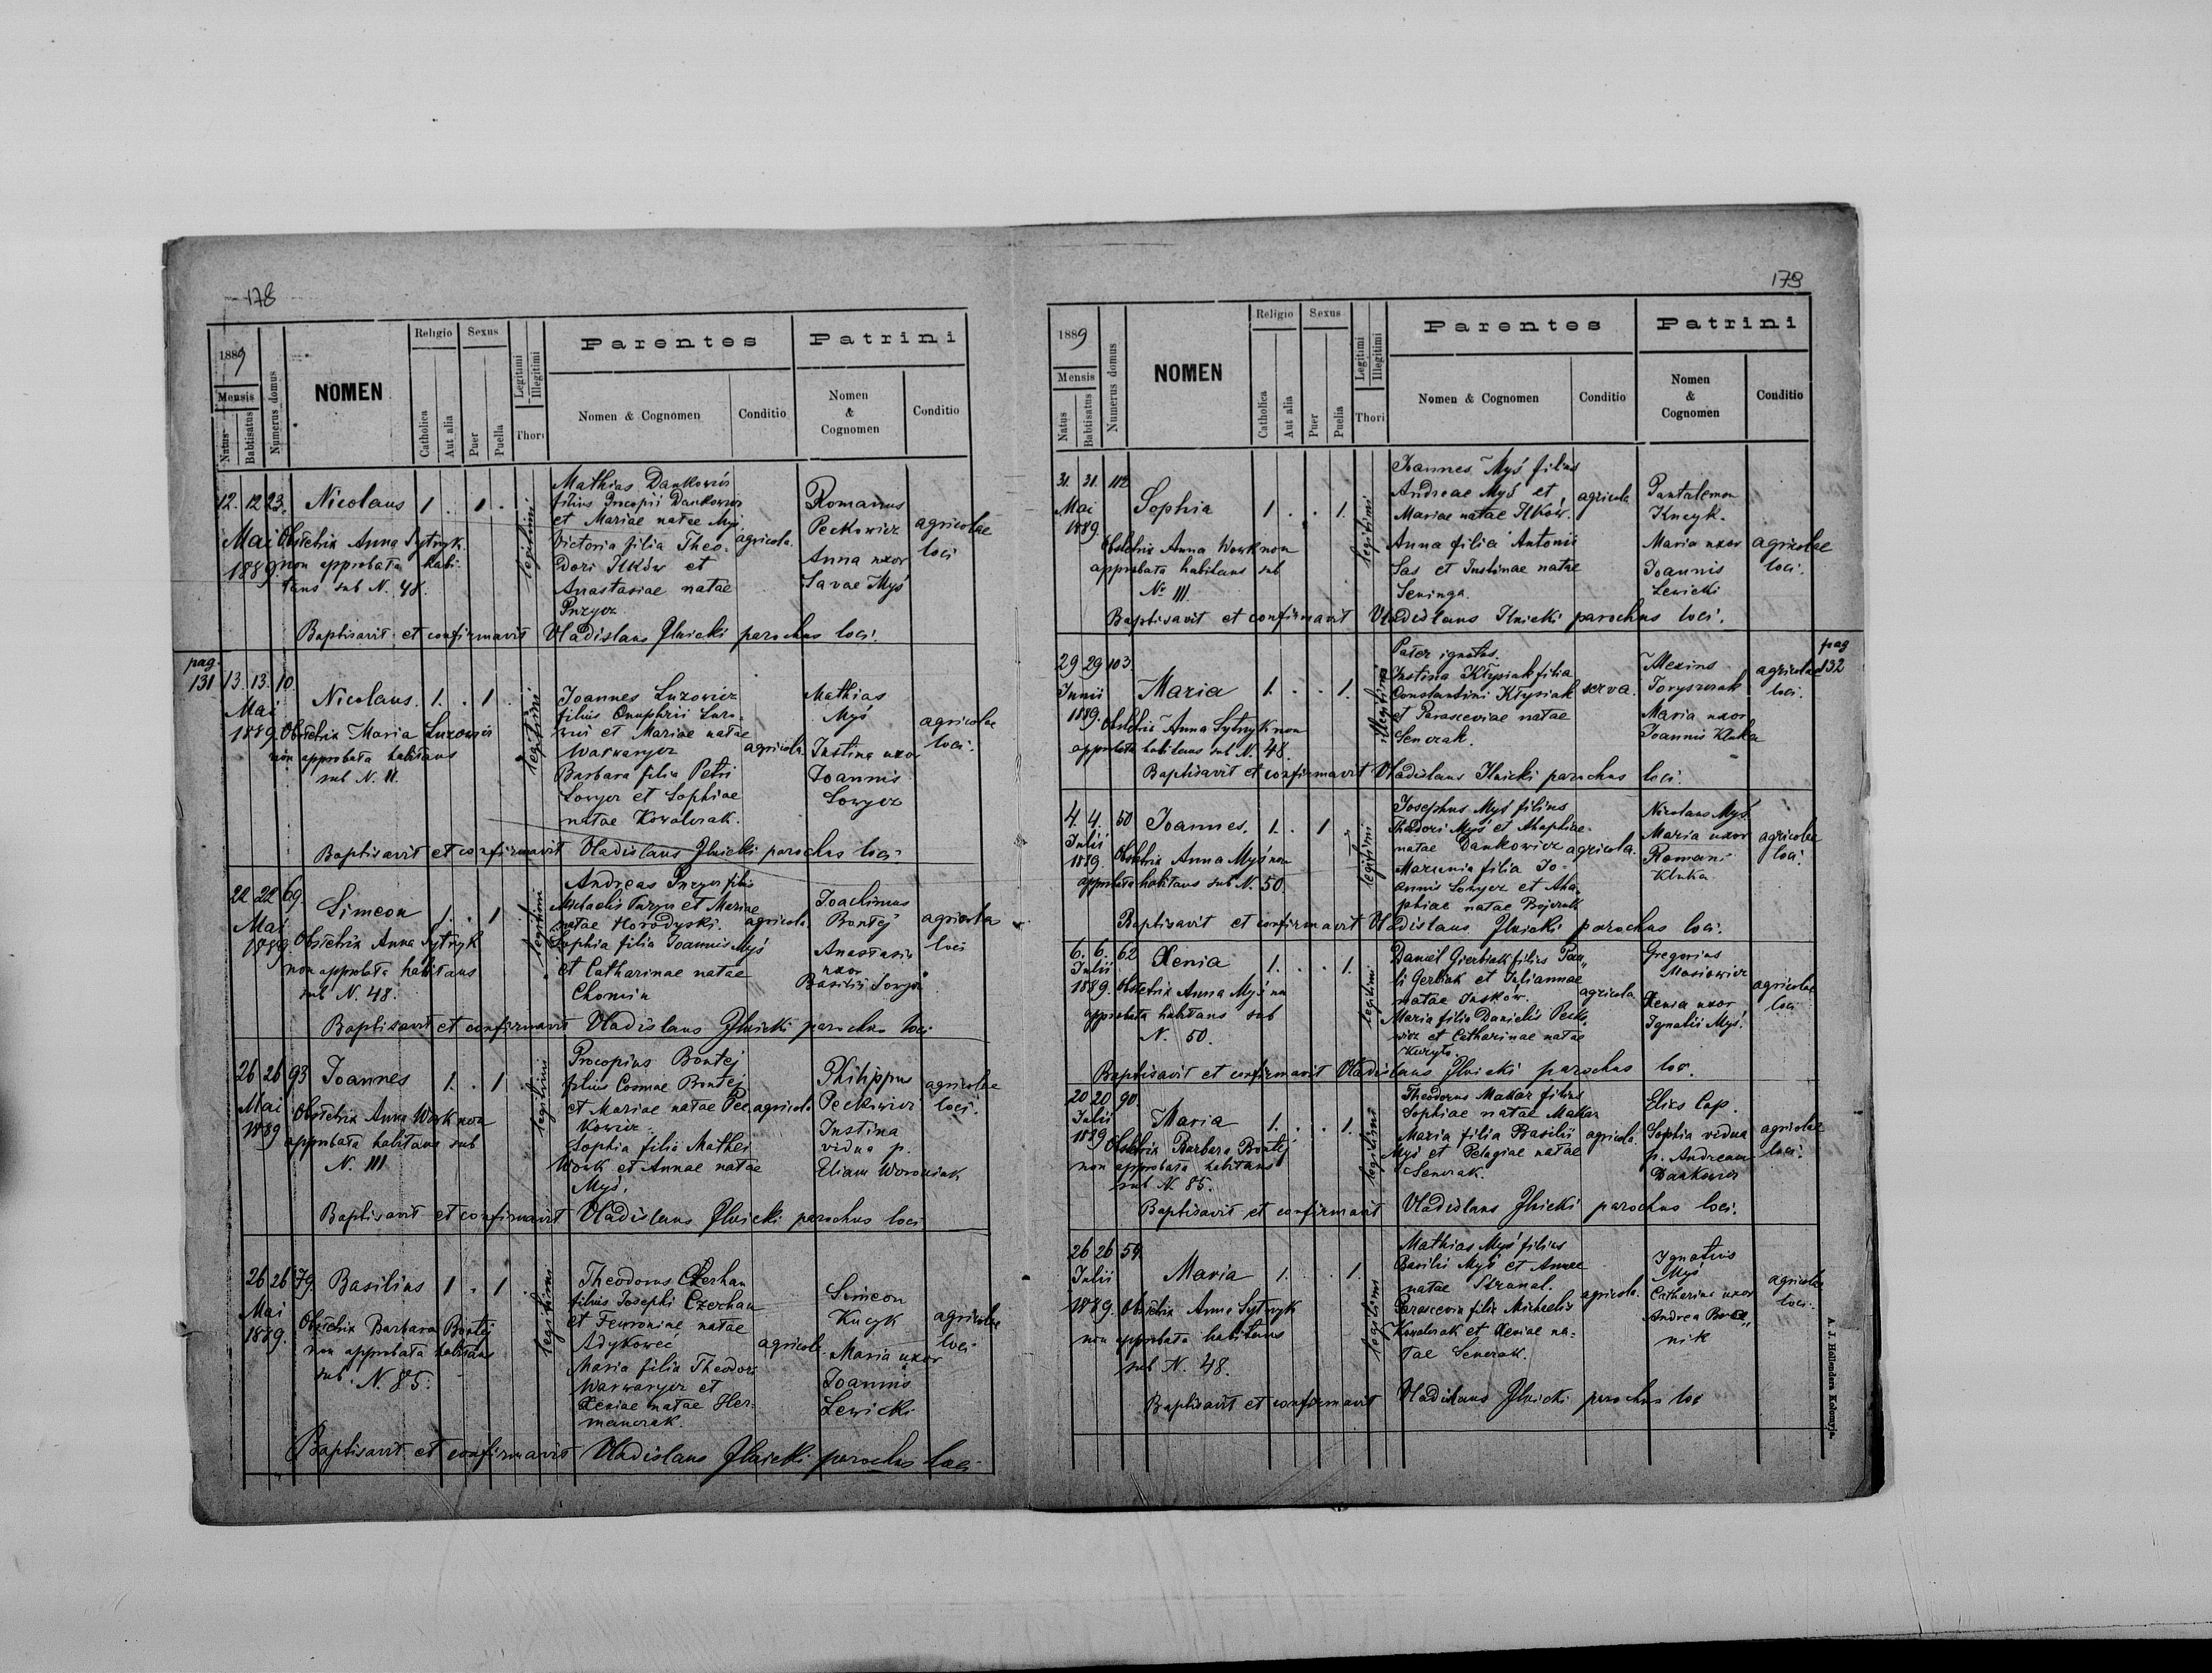 178
1889
Mensis
Natus
Babtisatus
Numerus domus
NOMEN
Religio
Catholica
Aut alia
Sexus
Puer
Puella
Legitimi
Illegitimi
Thori
Parentes
Nomen & Cognomen
Conditio
Patrini
Nomen
&
Cognomen
Conditio
12. 12 23. Nicolaus 1 . 1 .
Mai
1889.
Obstetrix Anna Sytnyk
non approbata habi-
tans sub N. 48.
legitimi
Mathias Dankowicz
filius Procopii Dankowicz
et Mariae natae Myś
Victoria filia Theo-
dori Ilków et
Anastasiae natae
Puzycz
agricola.
Romanus
Peckowicz
Anna uxor
Savae Myś
agricolae
loci
Baptisavit et confirmavit Vladislaus Ilnicki parochus loci.
pag.
131
13. 13. 10. Nicolaus. 1. . 1 .
Mai
1889.
Obstetrix Maria Luzowicz
non approbata habitans
sub N. 11.
legitimi
Joannes Luzowicz
filius Onuphrii Luzo-
wicz et Mariae natae
Warwarycz
Barbara filia Petri
Lowycz et Sophiae
natae Kowalczak.
agricola
Mathias
Myś
Justina uxor
Joannis
Lowycz
agricolae
loci.
Baptisavit et confirmavit Vladislaus Ilnicki parochus loci
22 22 69. Simeon 1. . 1
Mai
1889.
Obstetrix Anna Sytnyk
non approbata habitans
sub N. 48.
legitimi
Andreas Puzycz filius
Michaelis Puzycz et Mariae
natae Horodyski.
Sophia filia Joannis Myś
et Catharinae natae
Chomin
agricola
Joachimus
Bontej
Anastasia
uxor
Basilii
agricolae
loci
Baptisavit et confirmavit Vladislaus Ilnicki parochus loci
26 26 93 Joannes 1. . 1
Mai
1889
Obstetrix Anna Wowk non
approbata habitans sub
N. 111
legitimi
Procopius Bontej
filius Cosmae Bontej
et Mariae natae Pec-
kowicz.
Sophia filia Mathei
Wowk et Annae natae
Myś.
agricola
Philippus
Peckowicz
Justina
vidua p.
Eliam Woroniak
agricolae
loci.
Baptisavit et confirmavit Vladislaus Ilnicki parochus loci
26 26 79. Basilius 1 . 1
Mai
1889.
Obstetrix Barbara Bontej
non approbata habitans
sub N. 85.
legitimi
Theodorus Czerhan
filius Josephi Czerhan
et Fewroniae natae
Adykoweć
Maria filia Theodori
Warwarycz et
Xeniae natae Her-
manczak.
agricola
Simeon
Kucyk
Maria uxor
Joannis
Lewicki
agricolae
loci
Baptisavit et confirmavit Vladislaus Ilnicki parochus loci
179
1889
Mensis
Natus
Babtisatus
Numerus domus
NOMEN
Religio
Catholica
Aut alia
Sexus
Puer
Puella
Legitimi
Illegitimi
Thori
Parentes
Nomen & Cognomen
Conditio
Patrini
Nomen
&
Cognomen
Conditio
31. 31. 112 Sophia 1 . . 1.
Mai
1889.
Obstetrix Anna Wowk non
approbata habitans sub
No 111.
legitimi
Joannes Myś filius
Andreae Myś et
Mariae natae Ilków.
Anna filia Antonii
Sas et Justinae natae
Seninga.
agricola
Pantalemon
Kucyk.
Maria uxor
Joannis
Lewicki
agricolae
loci.
Baptisavit et confirmavit Vladislaus Ilnicki parochus loci.
pag
132
29 29 103. Maria 1. . . 1.
Junii
1889.
Obstetrix Anna Sytnyk non
approbata habitans sub N. 48.
illegitimi
Pater ignotus.
Justina Kłysiak filia
Constantini Kłysiak
et Parasceviae natae
Senczak.
serva.
Alexius
Maria uxor
Joannis Kluka
agricolae
loci.
Baptisavit et confirmavit Vladislaus Ilnicki parochus loci.
4. 4. 50 Joannes. 1. . 1
Julii
1889.
Obstetrix Anna Myś non
approbata habitans sub N. 50.
legitimi
Josephus Myś filius
Theodori Myś et Ahaphiae
natae Dankowicz
filia Jo-
annis Lowycz et Aha-
phiae natae Bojczuk
agricola.
Nicolaus Myś
Maria uxor
Romani
Kluka
agricolae
loci.
Baptisavit et confirmavit Vladislaus Ilnicki parochus loci.
6. 6. 62 Xenia 1. . . 1.
Julii
1889.
Obstetrix Anna Myś non
approbata habitans sub
N. 50.
legitimi
Daniel Gierbiak filius Pau-
li Gerbiak et Juliannae
natae Juśków.
Maria filia Danielis Pecko-
wicz et Catharinae natae
Kuryło.
agricola
Gregorius
Masiowicz
Xenia uxor
Ignatii Myś.
agricolae
loci
Baptisavit et confirmavit Vladislaus Ilnicki parochus loci.
20 20 90. Maria 1. . . 1.
Julii
1889
Obstetrix Barbara Bontej
non approbata habitans
sub N. 85.
legitimi
Theodorus Makar filius
Sophiae natae Makar
Maria filia Basilii
Myś et Pelagiae natae
Senczak.
agricola.
Elias Cap.
Sophia vidua
p. Andream
Dankowicz
agricolae
loci.
Baptisavit et confirmavit Vladislaus Ilnicki parochus loci.
26 26 59. Maria 1. . . 1.
Julii
1889.
Obstetrix Anna Sytnyk
non approbata habitans
sub N. 48.
legitimi
Mathias Myś filius
Basilii Myś et Annae
natae
Parascevia filia Michaelis
Kowalczak et Xeniae na-
tae Senczak.
agricola.
Ignatius
Myś
Catharina uxor
nik
agricolae
loci.
Baptisavit et confirmavit Vladislaus Ilnicki parochus loci
A. J. Hollendera Kołomyja.